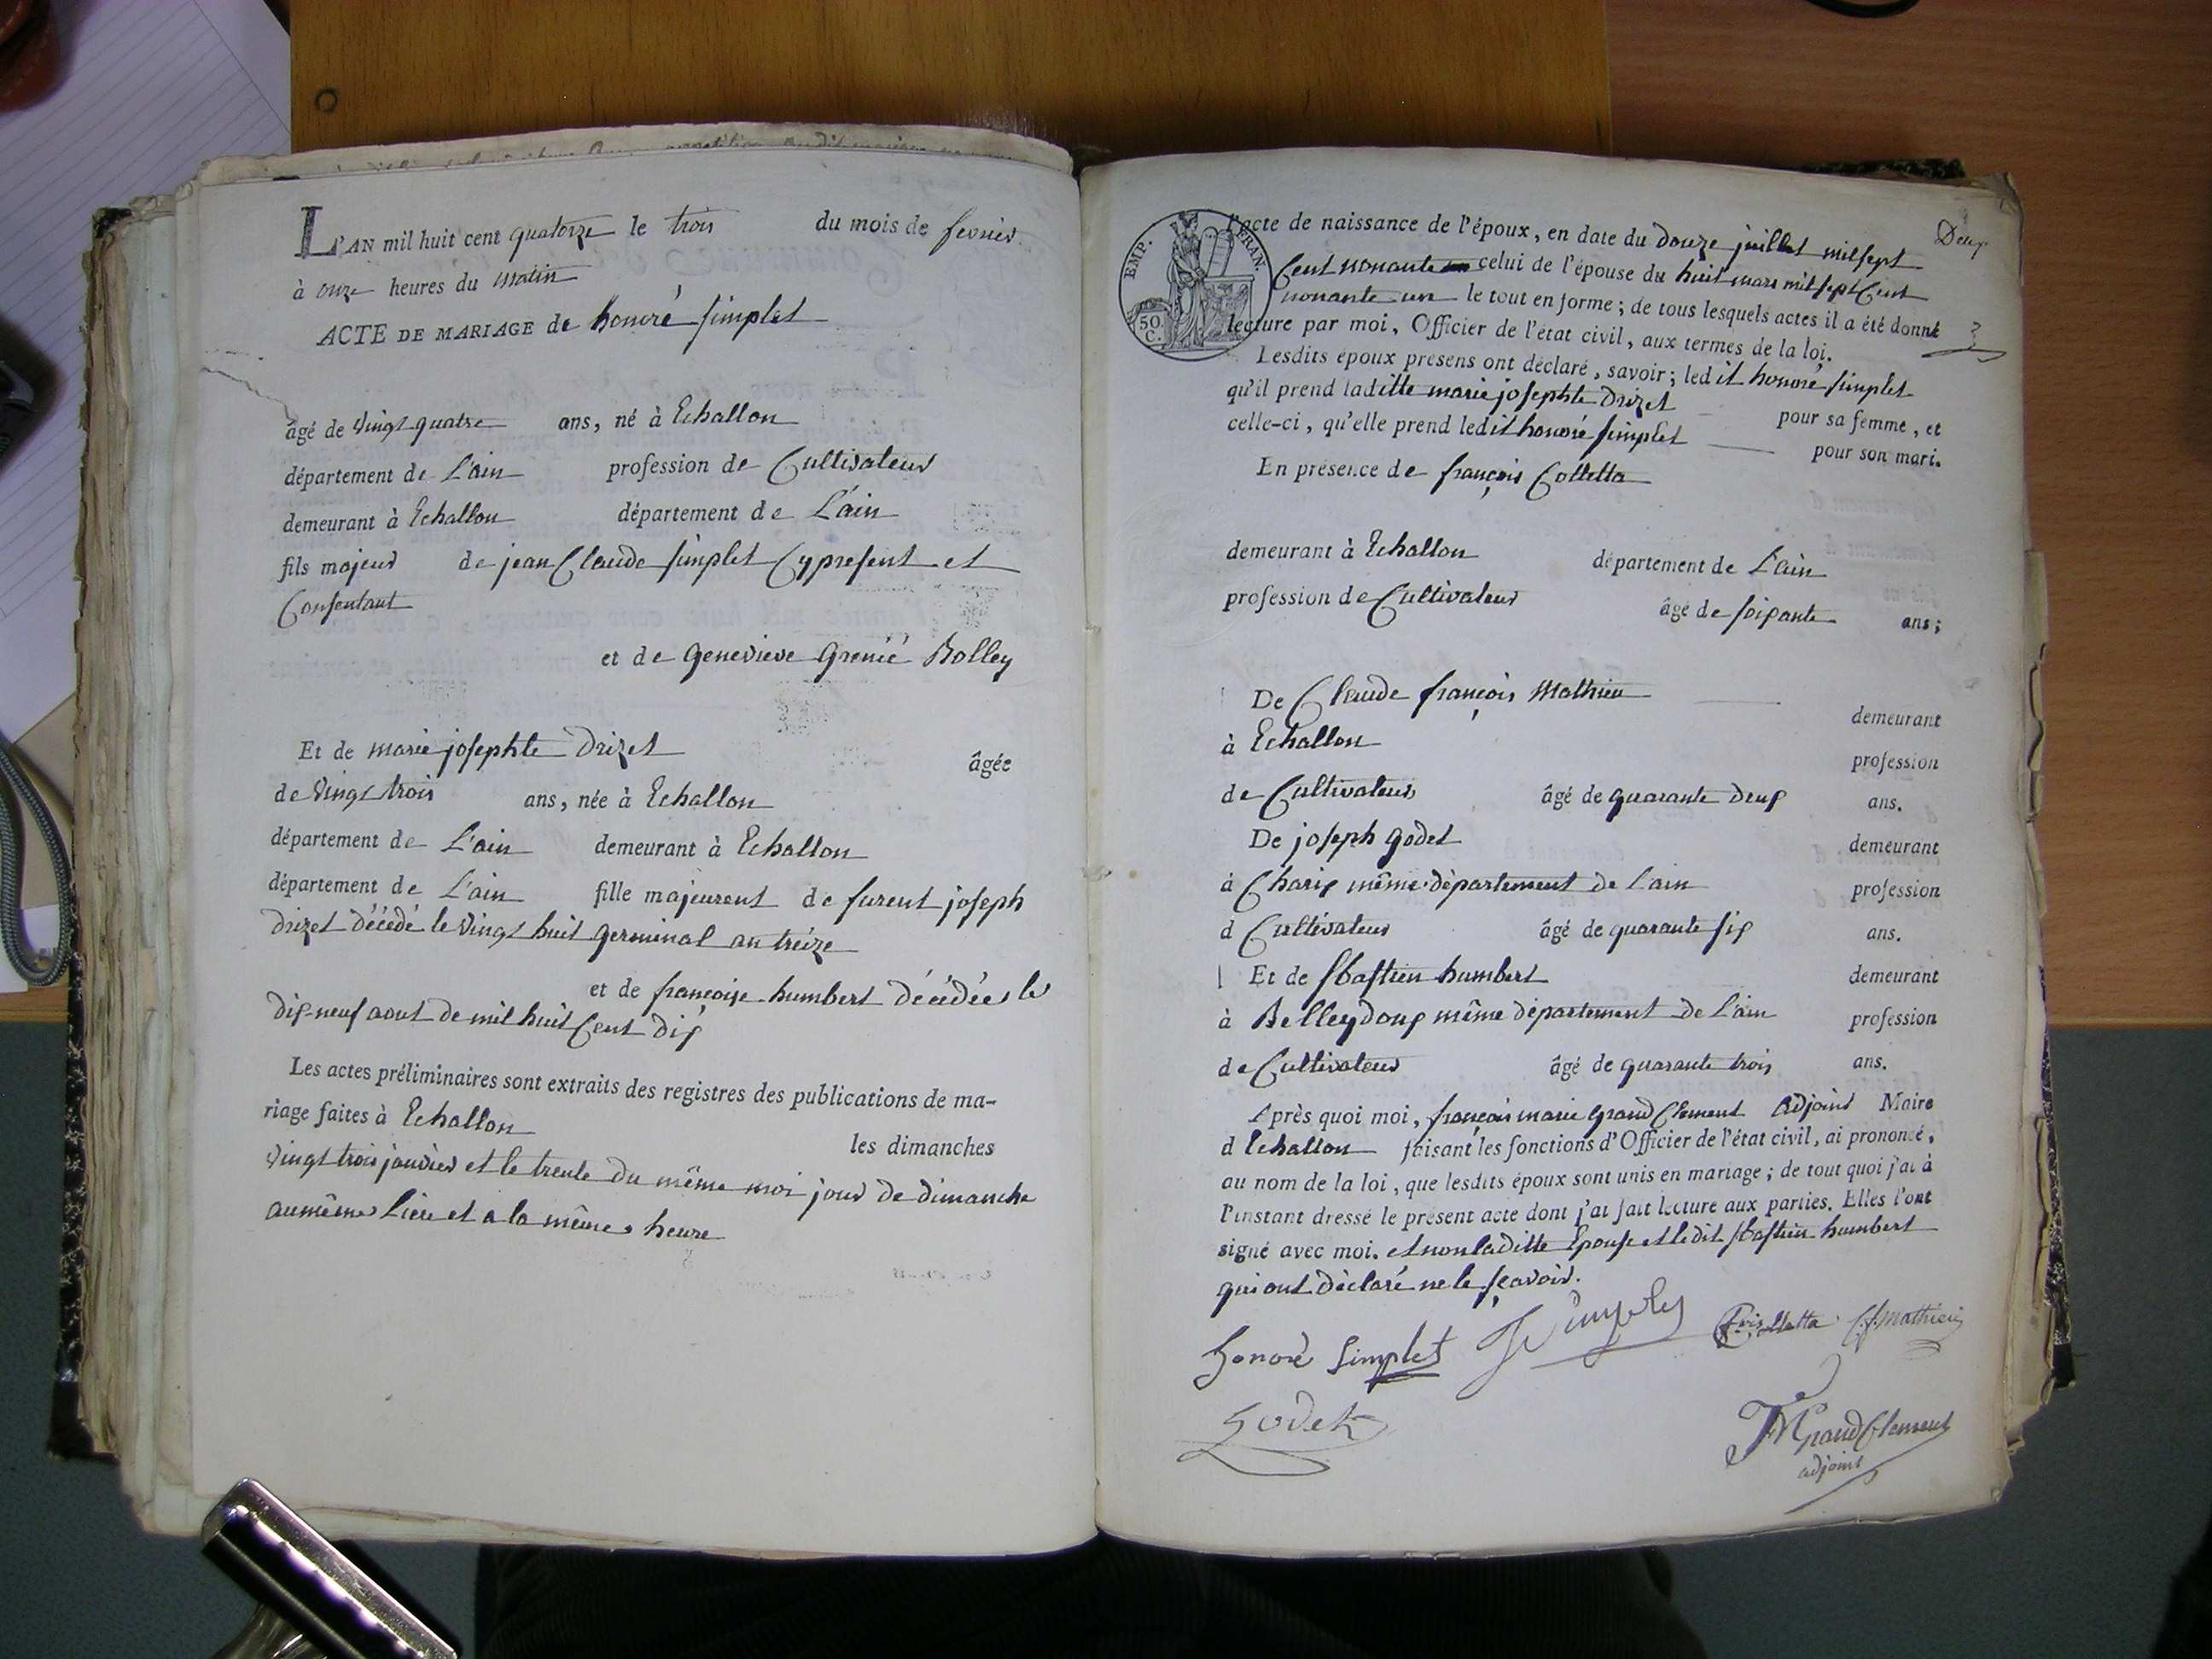 L'AN mil huit cent quatorze le trois du mois de fevrier
à onze heures du matin
ACTE DE MARIAGE de honoré simplet
âgé de vingt quatre ans, né à Echallon
département de L'ain profession de Cultivateur
demeurant à Echallon département de L'ain
fils majeur de jean Claude simplet Cy present et
Consentant
et de genevieve grenié Bolley
Et de marie josephte Drizet âgée
de vingt trois ans, née à Echallon
département de L'ain demeurant à Echallon
département de L'ain fille majeure de furent joseph
Drizet décédé le vingt huit germinal an treize
et de françoise humbert décédée le
dix-neuf aout de mil huit Cent dix
Les actes préliminaires sont extraits des registres des publications de ma-
riage faites à Echallon
les dimanches
vingt trois janvier et le trente du même moi jour de dimanche
au même Lieu et a la même heure
EMP. FRAN.
50 C.
Deux
l'acte de naissance de l'époux, en date du douze juillet mil sept
Cent nonante celui de l'épouse du huit mars mil sept Cent
nonante un le tout en forme; de tous lesquels actes il a été donné
lecture par moi, Officier de l'état civil, aux termes de la loi.
Lesdits époux présens ont déclaré, savoir; ledit honoré simplet
qu'il prend laditte marie josephte Drizet pour sa femme, et
celle-ci, qu'elle prend ledit honoré simplet pour son mari.
En présence de françois Colletta
demeurant à Echallon département de L'ain
profession de Cultivateur âgé de soixante ans;
De Claude françois Mathieu demeurant
à Echallon profession
de Cultivateur âgé de quarante deux ans.
De joseph godet demeurant
à Charix même département de L'ain profession
d Cultivateur âgé de quarante six ans.
Et de sbastien humbert demeurant
à Belleydoux même département de L'ain profession
de Cultivateur âgé de quarante trois ans.
Après quoi moi, françois marie grand Clement Adjoint Maire
d Echallon faisant les fonctions d'Officier de l'état civil, ai prononcé,
au nom de la loi, que lesdits époux sont unis en mariage; de tout quoi j'ai à
l'instant dressé le présent acte dont j'ai fait lecture aux parties. Elles l'ont
signé avec moi. et non laditte Epouse et ledit sbastien humbert
qui ont déclaré ne le sçavoir.
honoré Simplet
fcois Colletta C.f. Mathieu
Godet
FM Grand Clement
adjoint